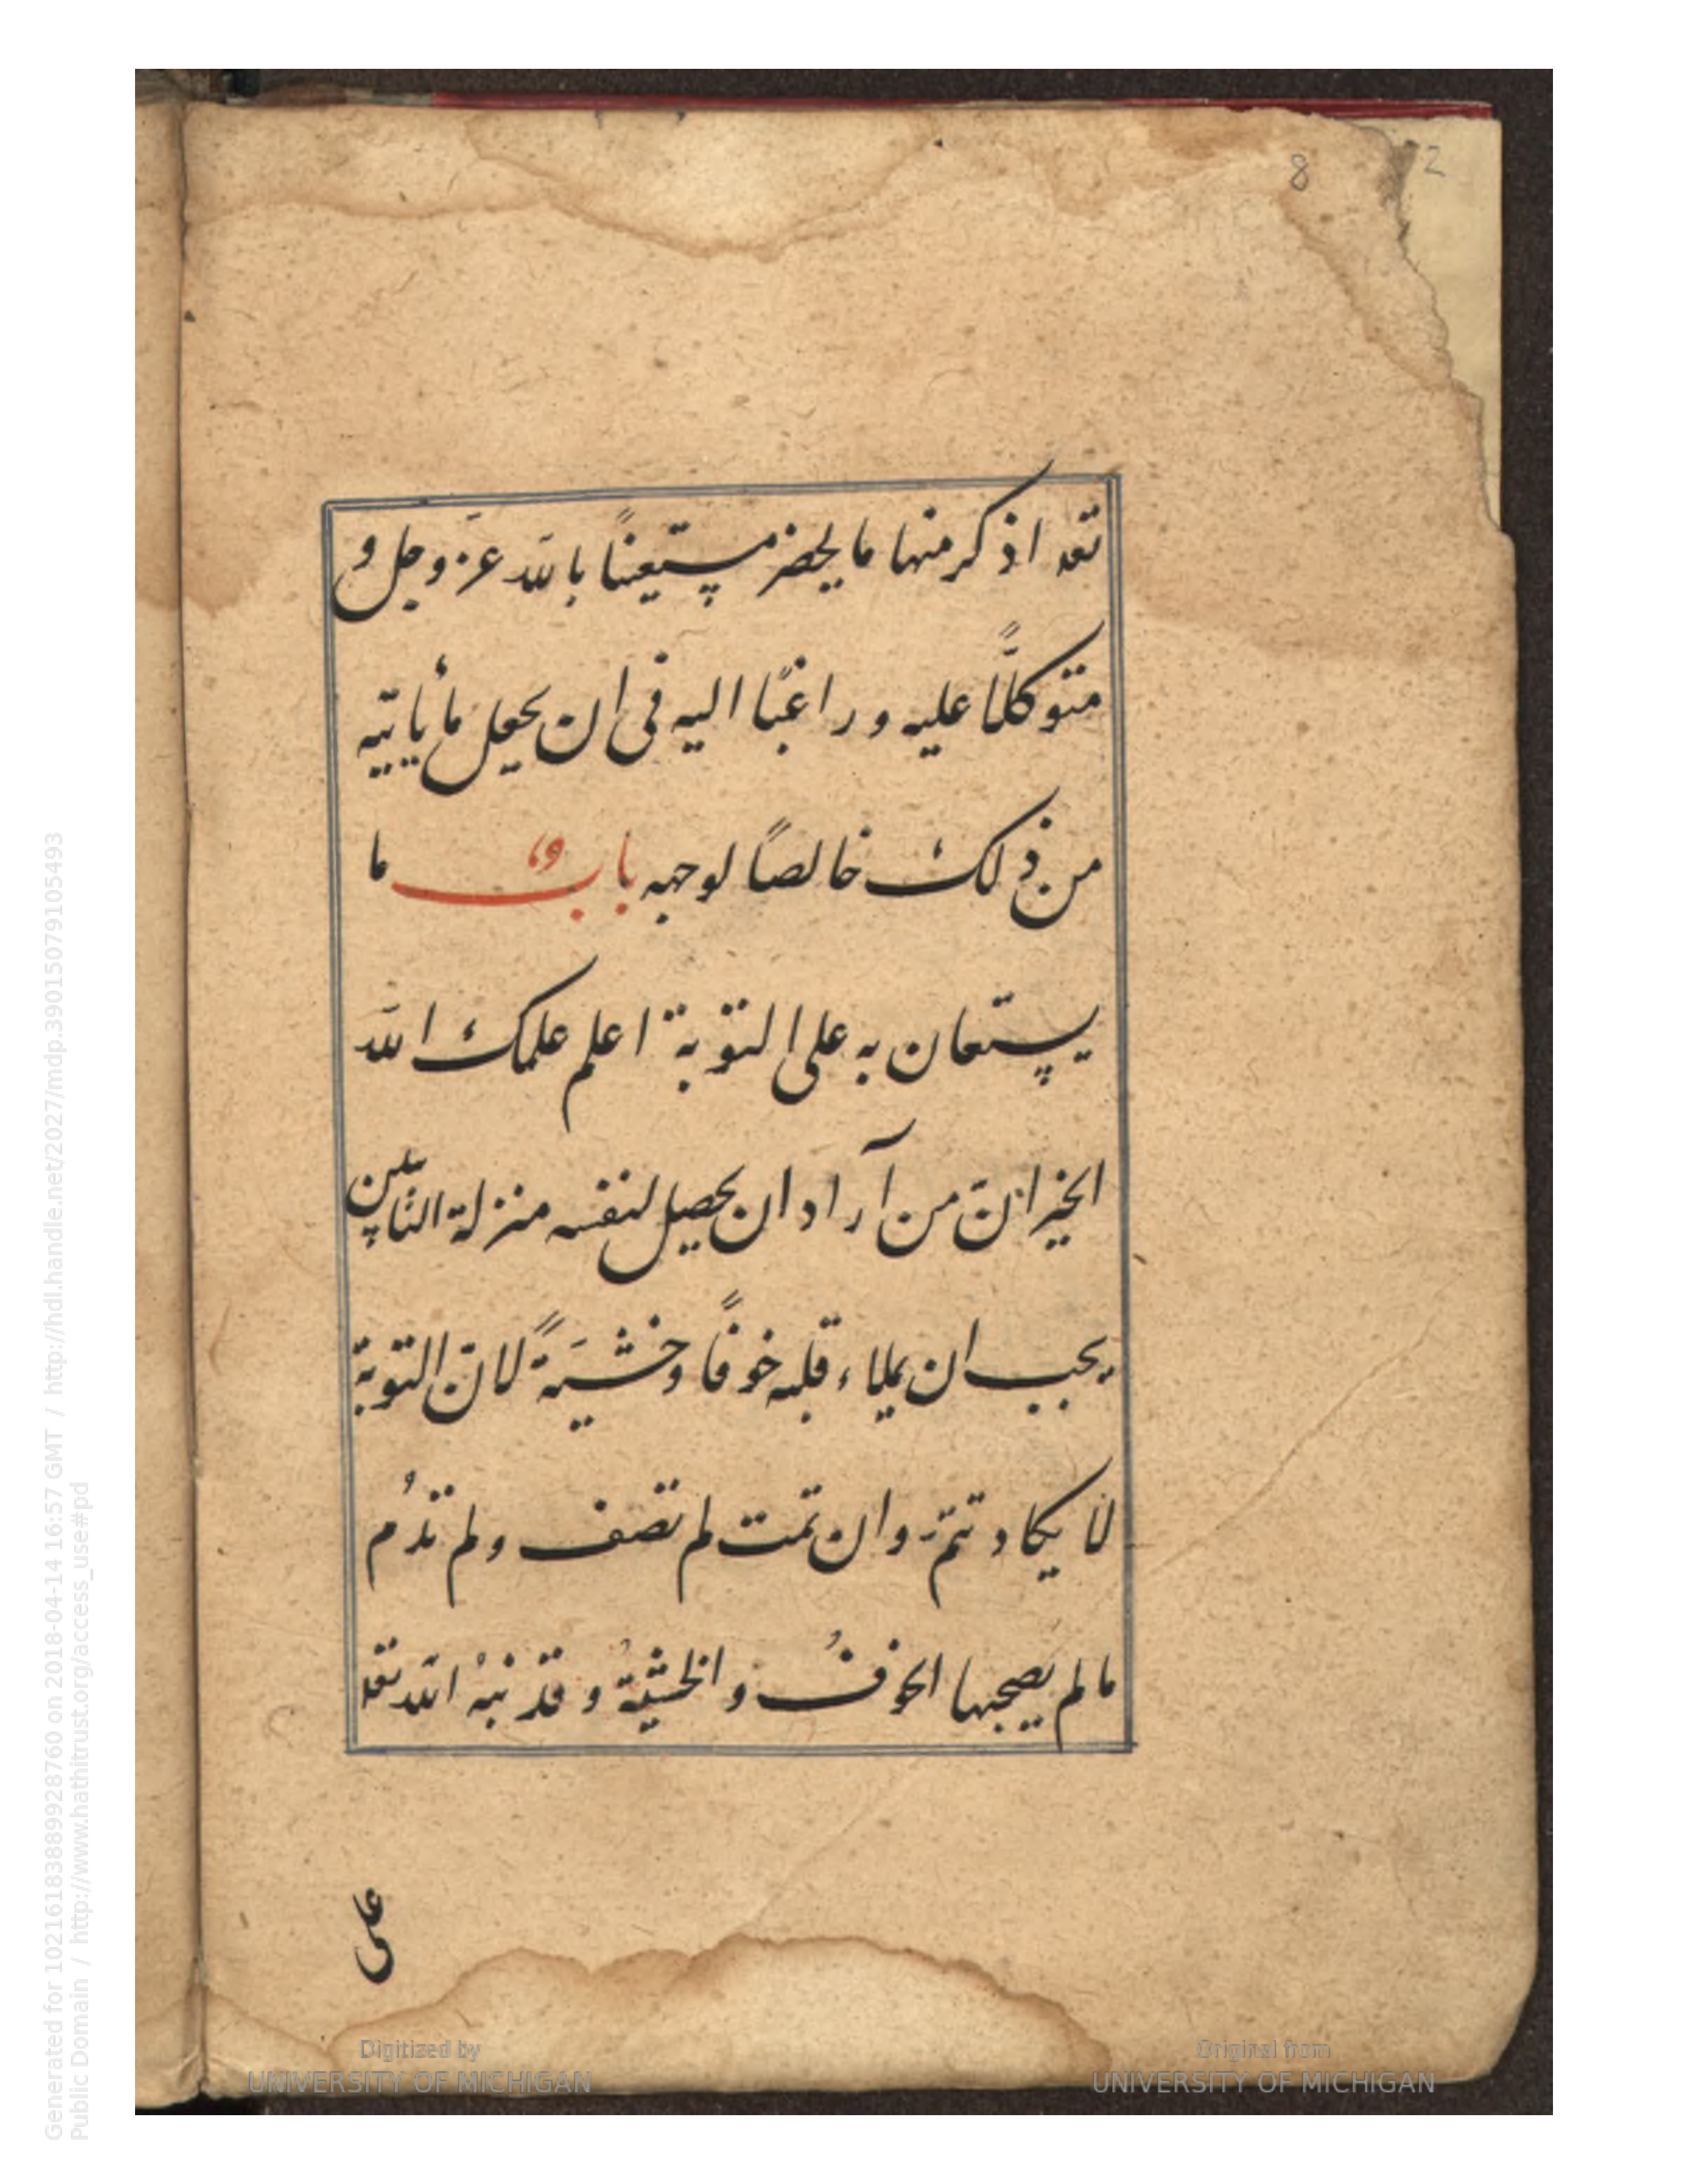 8 2
تعد اذكر منها ما يحضر مستعينًا بالله عزّ وجل و
متوكلًّا عليه وراغبًا اليه فى ان يجعل ما يأتيه
من ذلك خالصًا لوجهه باب ما
يستعان به على التوبة اعلم علمك الله
الخير انّ من آراد ان يحصيل لنفسه منزلة التايبين
يجب ان يملاء قلبه خوفًا وخشيَةً لانّ التوبة
لا يكاد تتمّ وان تمت لم تصف ولم تدُم
ما لم يصحبها الخوفُ والخشيةُ وقد نبهُ الله تعلا
على
Generated for 10216183889928760 on 2018-04-14 16:57 GMT / http://hdl.handle.net/2027/mdp.39015079105493
Public Domain / http://www.hathitrust.org/access_use#pd
Digitized by
UNIVERSITY OF MICHIGAN
Original from
UNIVERSITY OF MICHIGAN